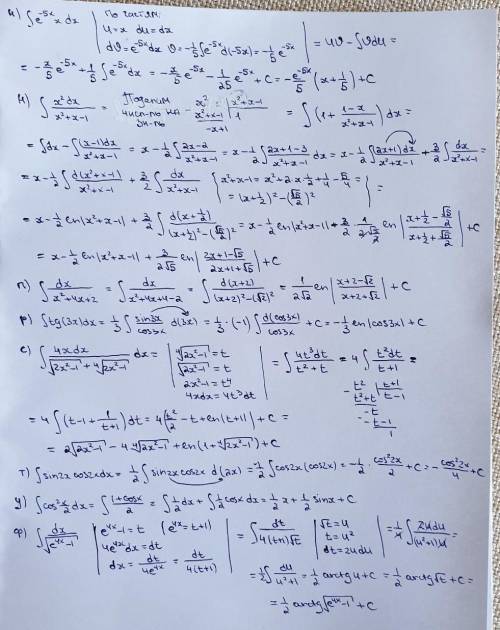 и) ∫e^(-5x) x dx | По частям: u=x du=dx dϑ=e^(-5x)dx ϑ=-1/5∫e^(-5x)d(-5x)=-1/5 e^(-5x) | = uϑ-∫ϑdu=
= -x/5 e^(-5x) + 1/5 ∫e^(-5x)dx = -x/5 e^(-5x) - 1/25 e^(-5x) + C = -e^(-5x)/5 (x+1/5) + C
н) ∫ x²dx/(x²+x-1) = | Поделим числ-ль на зн-ль x² | x²+x-1 x²+x-1 | 1 -x+1 | = ∫(1 + (1-x)/(x²+x-1))dx =
= ∫dx - ∫(x-1)dx/(x²+x-1) = x - 1/2 ∫(2x-2)/(x²+x-1) = x - 1/2 ∫(2x+1-3)/(x²+x-1) dx = x - 1/2 ∫(2x+1)dx/(x²+x-1) + 3/2 ∫dx/(x²+x-1) =
= x - 1/2 ∫d(x²+x-1)/(x²+x-1) + 3/2 ∫dx/(x²+x-1) { x²+x-1 = x²+2·x·1/2+1/4-5/4 = = (x+1/2)²-(√5/2)² } =
= x - 1/2 ln|x²+x-1| + 3/2 ∫d(x+1/2)/((x+1/2)²-(√5/2)²) = x - 1/2 ln|x²+x-1| + 3/2 · 1/(2·√5/2) ln|(x+1/2-√5/2)/(x+1/2+√5/2)| + C
= x - 1/2 ln|x²+x-1| + 3/(2√5) ln|(2x+1-√5)/(2x+1+√5)| + C
п) ∫dx/(x²+4x+2) = ∫dx/(x²+4x+4-2) = ∫d(x+2)/((x+2)²-(√2)²) = 1/(2√2) ln|(x+2-√2)/(x+2+√2)| + C
р) ∫tg(3x)dx = 1/3 ∫sin3x/cos3x d(3x) = 1/3·(-1)∫d(cos3x)/cos3x + C = -1/3 ln|cos3x| + C
с) ∫4xdx/(√(2x²-1)+⁴√(2x²-1)) dx = | ⁴√(2x²-1)=t √(2x²-1)=t² 2x²-1=t⁴ 4xdx=4t³dt | = ∫4t³dt/(t²+t) = 4∫t²dt/(t+1) =
t² | t+1
t²+t | t-1
-t
-t-1
1
= 4∫(t-1+1/(t+1))dt = 4(t²/2 - t + ln|t+1|) + C =
= 2√(2x²-1) - 4⁴√(2x²-1) + ln(1+⁴√(2x²-1)) + C
т) ∫sin2x cos2x dx = 1/2 ∫sin2x cos2x d(2x) = -1/2 ∫cos2x(cos2x) = -1/2 · cos²2x/2 + C = -cos²2x/4 + C
у) ∫cos² x/2 dx = ∫(1+cosx)/2 = ∫1/2 dx + ∫1/2 cosx dx = 1/2 x + 1/2 sinx + C
ф) ∫dx/√(e^(4x)-1) | e^(4x)-1=t (e^(4x)=t+1) 4e^(4x)dx=dt dx=dt/(4e^(4x))=dt/(4(t+1)) | = ∫dt/(4(t+1)√t) | √t=u t=u² dt=2udu | = 1/4 ∫2udu/((u²+1)u) =
= 1/2 ∫du/(u²+1) = 1/2 arctg u + C = 1/2 arctg√t + C =
= 1/2 arctg√(e^(4x)-1) + C